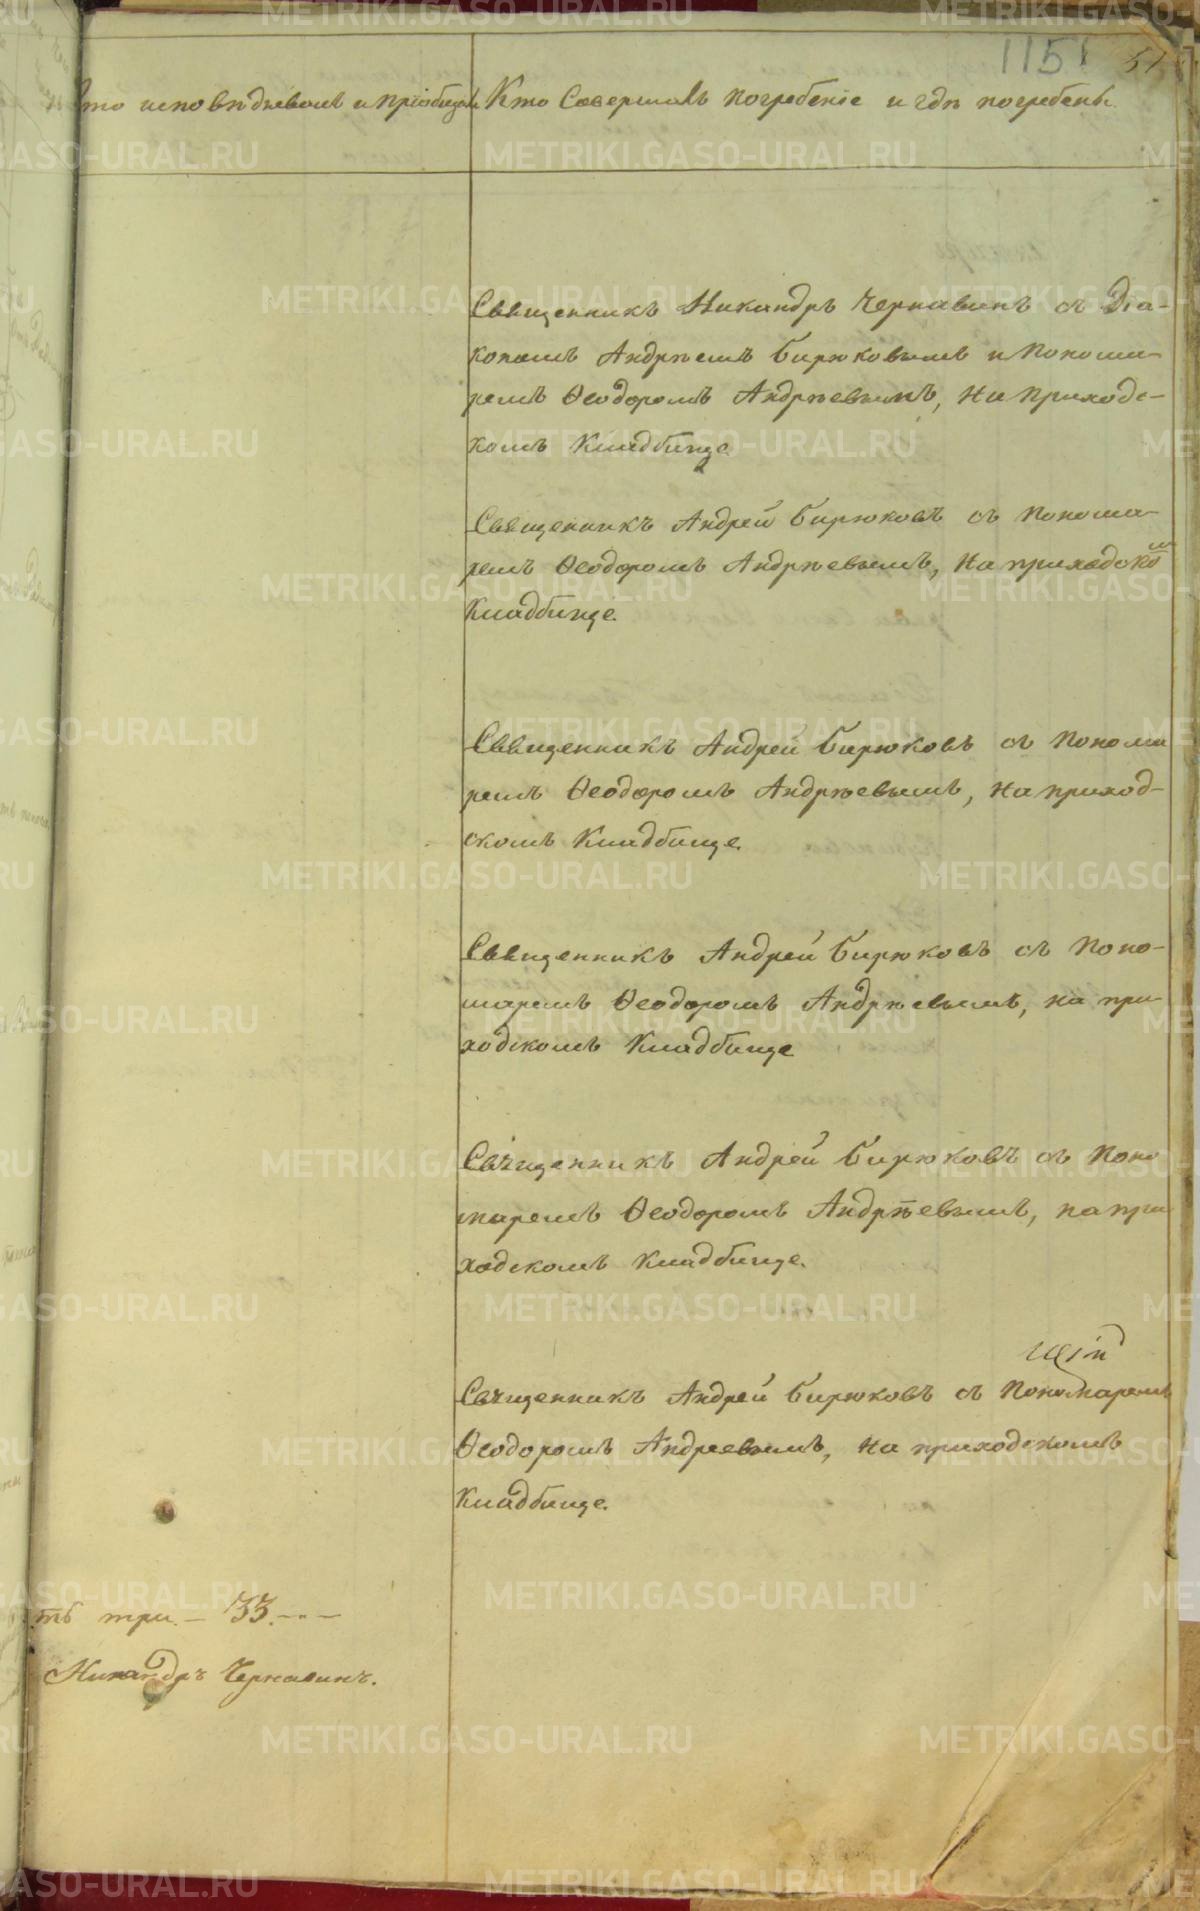 1151 51
Кто исповѣдывалъ и пріобщалъ
Кто Совершалъ Погребеніе и гдѣ погребены.
Священникъ Никандръ Чернавинъ съ Діа-
кономъ Андрѣемъ Бирюковымъ и Понома-
ремъ Ѳеодоромъ Андрѣевымъ, на Приходс-
комъ Кладбище
Священникъ Андрей Бирюковъ съ Понома-
ремъ Ѳеодоромъ Андрѣевымъ, на приходском
Кладбище.
Священникъ Андрей Бирюковъ съ Понома
ремъ Ѳеодоромъ Андрѣевымъ, на приход-
скомъ Кладбище.
Священникъ Андрей Бирюковъ съ Поно-
маремъ Ѳеодоромъ Андрѣевымъ, на при-
ходскомъ Кладбище
Священникъ Андрей Бирюковъ съ Поно
маремъ Ѳеодоромъ Андрѣевымъ, на при
ходскомъ Кладбище.
Священникъ Андрей Бирюковъ съ Пономаремъ
Ѳеодоромъ Андреевымъ, на приходскомъ
Кладбище.
ть три. — 33. - - -
Никандръ Чернавинъ.
METRIKI.GASO-URAL.RU